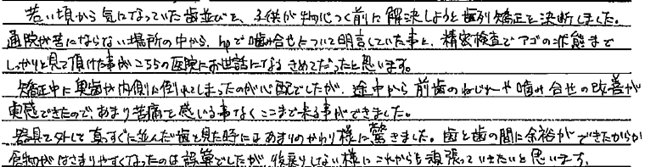 若い頃から気になっていた歯並びを、子供が物心つく前に解決しようと歯列矯正を決断しました。
通院が苦にならない場所の中から、hpで噛み合せについて明言していた事と、精密検査でアゴの状態まで
しっかりと見て頂けた事がこちらの医院にお世話になるきめてだったと思います。
矯正中に奥歯が内側に倒れてしまったのが心配でしたが、途中から前歯のねじれや噛み合せの改善が
実感できたので、あまり苦痛を感じる事なくここまで来る事ができました。
器具を外して真っすぐに並んだ歯を見た時にはあまりのかわり様に驚きました。歯と歯の間に余裕ができたからか
食物がはさまりやすくなったのは誤算でしたが、後戻りしない様にこれからも頑張っていきたいと思います。